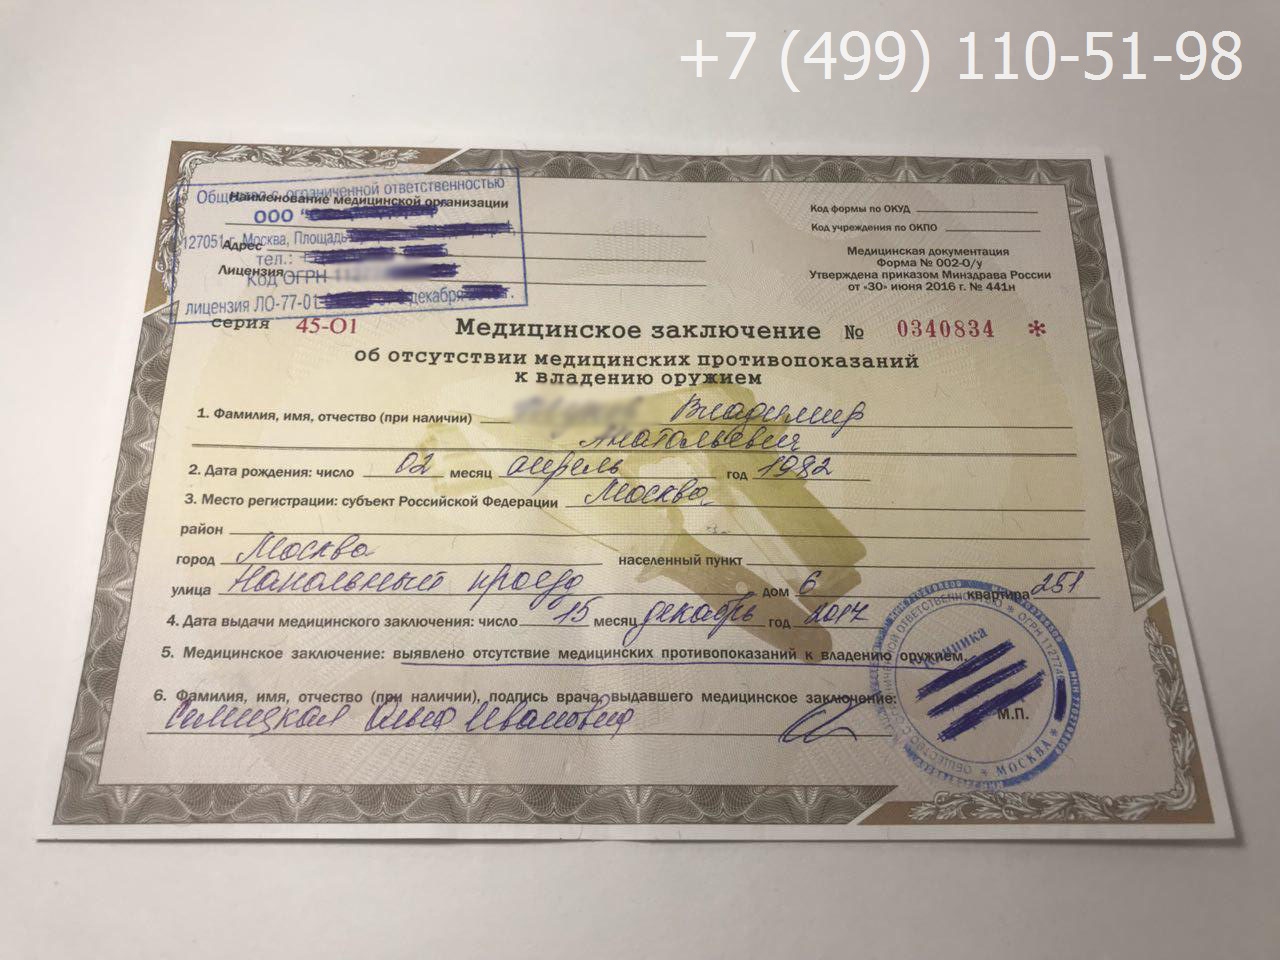 +7 (499) 110-51-98
Общество с ограниченной ответственностью
Наименование медицинской организации
ООО
127051, Москва, Площадь
Адрес
тел.:
Лицензия
Код ОГРН
лицензия ЛО-77-01 декабря
Код формы по ОКУД
Код учреждения по ОКПО
Медицинская документация
Форма № 002-О/у
Утверждена приказом Минздрава России
от «30» июня 2016 г. № 441н
серия 45-01 Медицинское заключение № 0340834 *
об отсутствии медицинских противопоказаний
к владению оружием
1. Фамилия, имя, отчество (при наличии) Владимир
Анатольевич
2. Дата рождения: число 02 месяц апрель год 1982
3. Место регистрации: субъект Российской Федерации Москва
район
город Москва населенный пункт
улица Напольный проезд дом 6 квартира 251
4. Дата выдачи медицинского заключения: число 15 месяц декабрь год 2017
5. Медицинское заключение: выявлено отсутствие медицинских противопоказаний к владению оружием.
6. Фамилия, имя, отчество (при наличии), подпись врача, выдавшего медицинское заключение:
Ольга Ивановна
М.П.
Клиника
МОСКВА